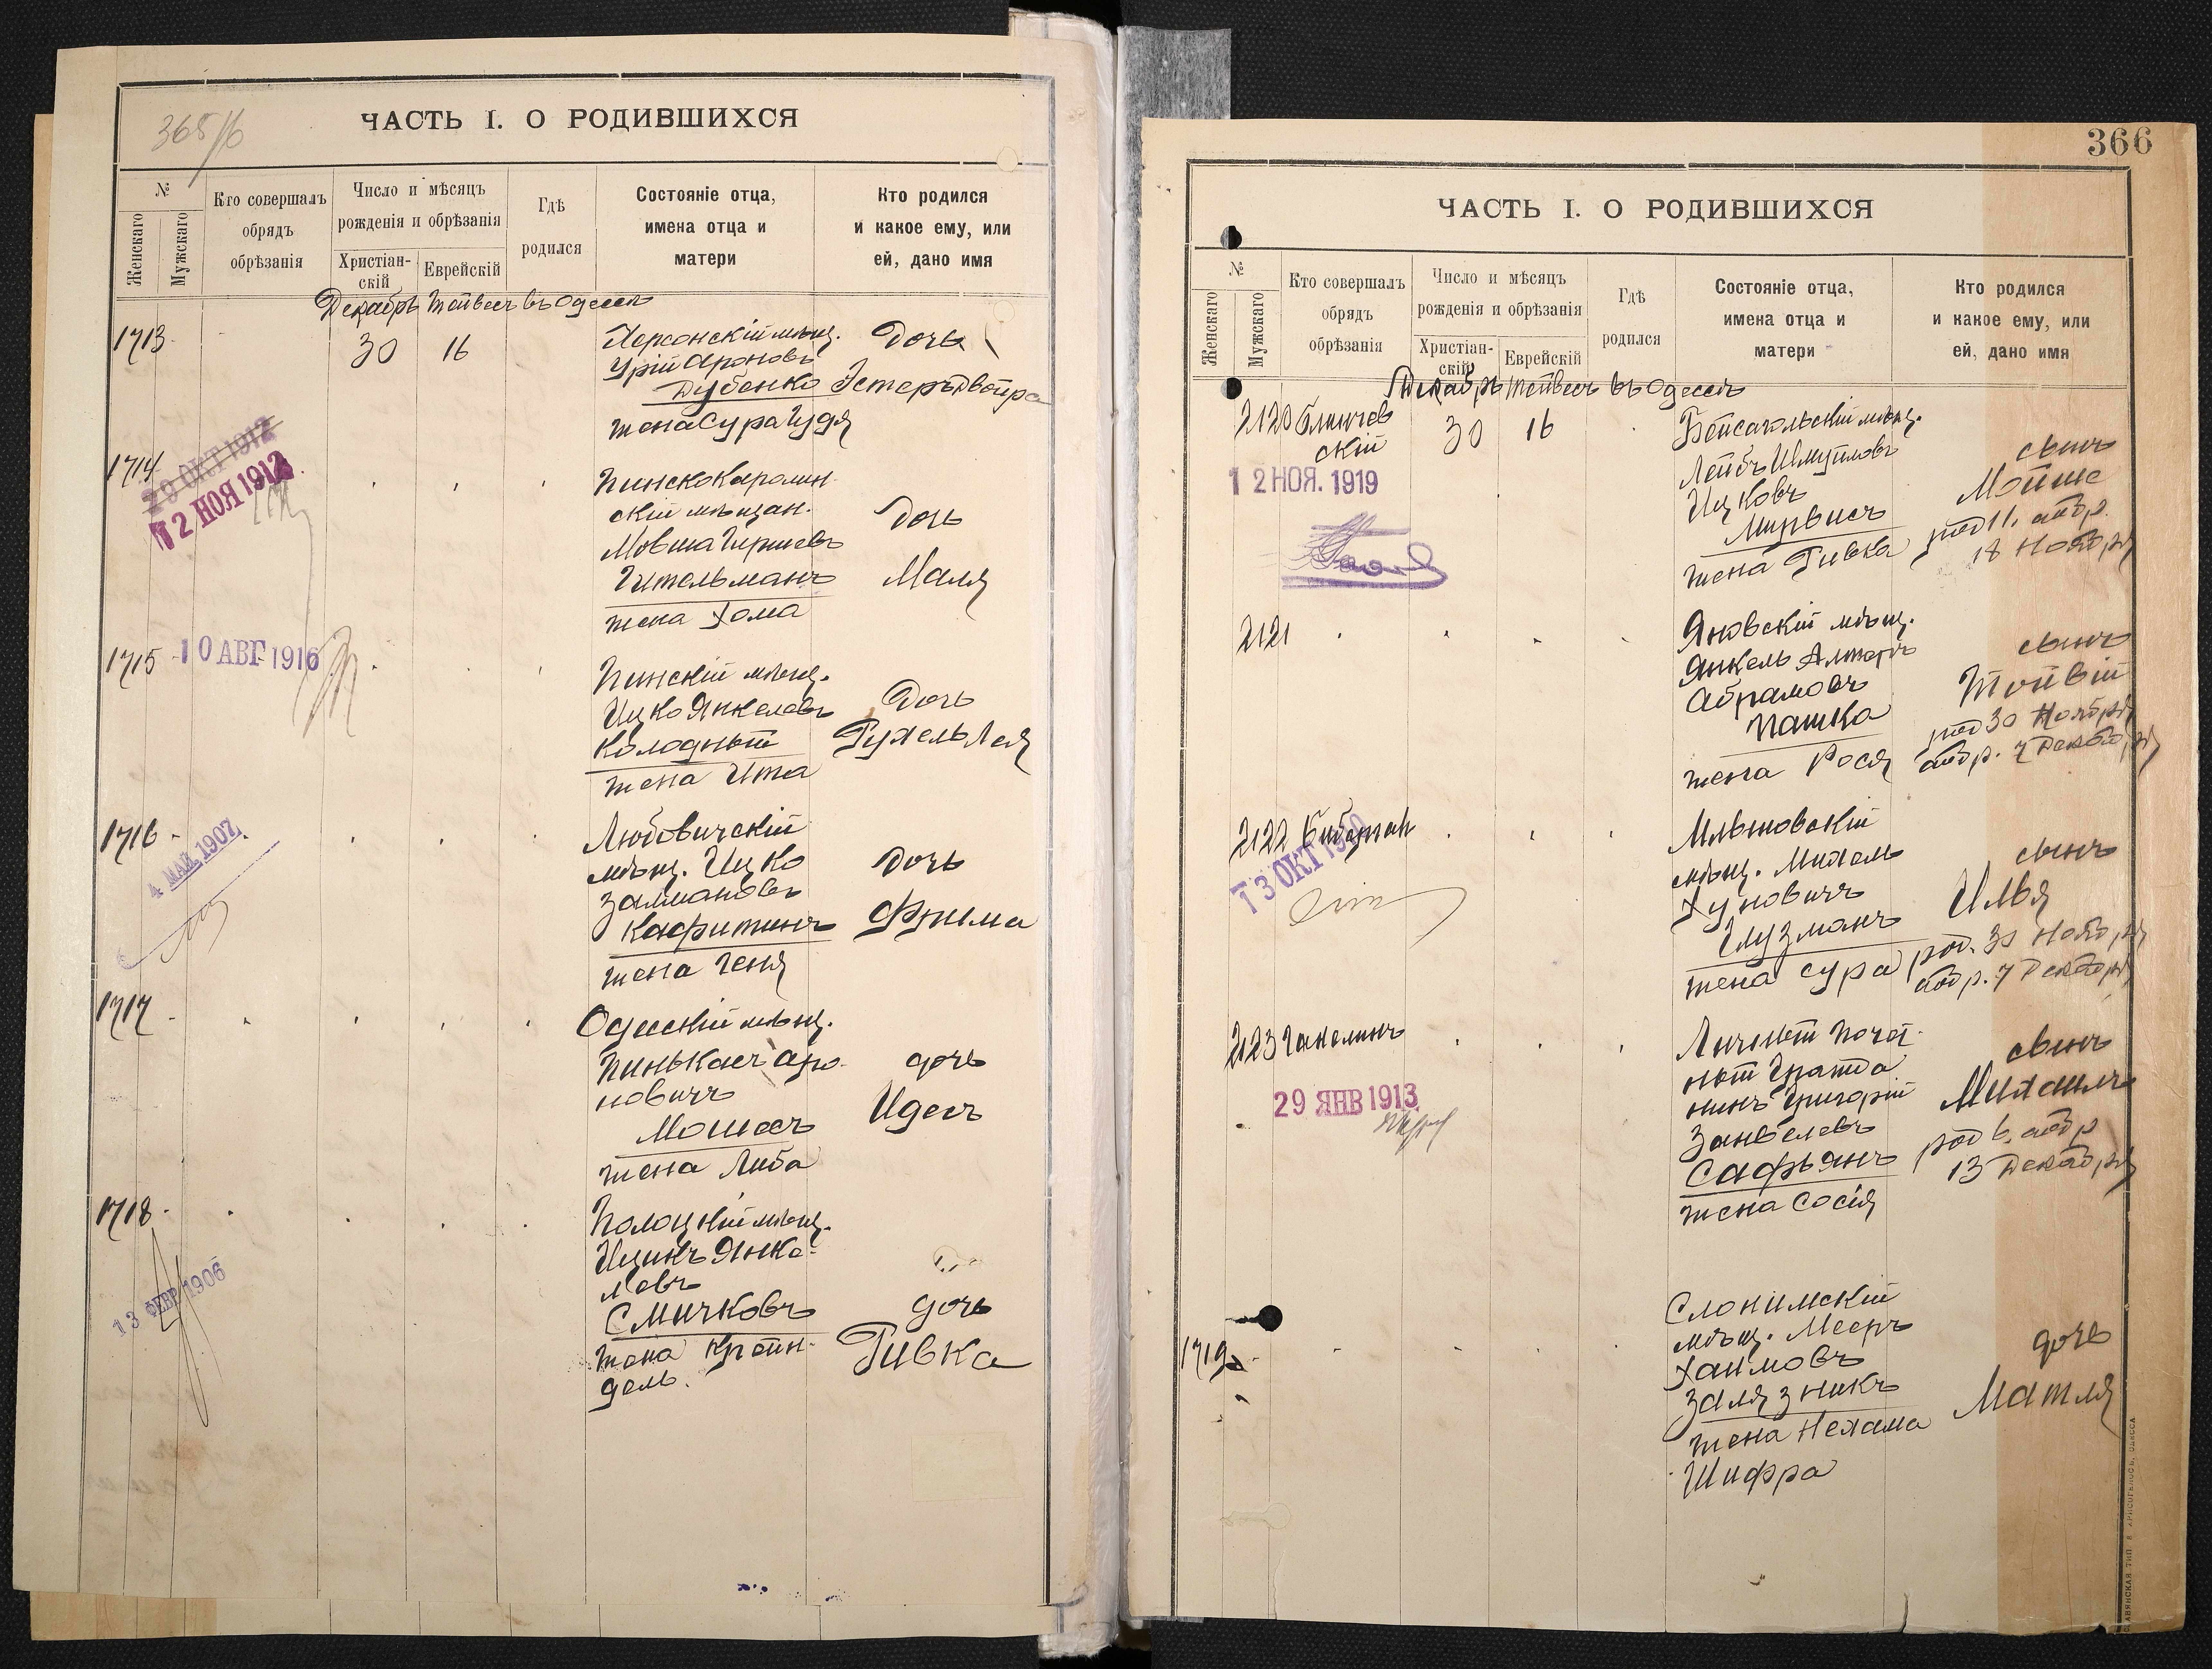 365/б
ЧАСТЬ I. О РОДИВШИХСЯ
№
Женскаго
Мужскаго
Кто совершалъ
обрядъ
обрѣзанія
Число и мѣсяцъ
рожденія и обрѣзанія
Христіан-
скій
Еврейскій
Гдѣ
родился
Состояніе отца,
имена отца и
матери
Кто родился
и какое ему, или
ей, дано имя
Декабрь Тейвесъ въ Одессѣ
1713
30
16
Херсонскій мѣщ.
Урій Ароновъ
Дубенко
жена Сура Гудя
Дочь
Эстеръ Двойра
1714
29 ОКТ 1912
12 НОЯ 1912
Пинскокаролин
скій мѣщан.
Мовша Гершевъ
Гительманъ
жена Хома
Дочь
Маля
1715
10 АВГ 1916
Пинскій мѣщ.
Ицко Янкелевъ
Колодный
жена Ита
Дочь
Рухель Лея
1716
4 МАЙ 1907
Любовичскій
мѣщ. Ицко
Залмановъ
Кафитинъ
жена Геня
Дочь
Фрима
1717
Одесскій мѣщ.
Пинькасъ Аро-
новичъ
Мошесъ
жена Либа
дочь
Идесъ
1718
13 ФЕВР 1906
Полоцкій мѣщ.
Ицикъ Янке-
левъ
Смичковъ
жена Крейн-
дель.
дочь
Ривка
366
ЧАСТЬ I. О РОДИВШИХСЯ
№
Женскаго
Мужскаго
Кто совершалъ
обрядъ
обрѣзанія
Число и мѣсяцъ
рожденія и обрѣзанія
Христіан-
скій
Еврейскій
Гдѣ
родился
Состояніе отца,
имена отца и
матери
Кто родился
и какое ему, или
ей, дано имя
Декабрь Тейвесъ въ Одессѣ
2120
скій
12 НОЯ. 1919
30
16
Бейсагольскій мѣщ.
Лейбъ Шмуйловъ
Ицковъ
Мирвисъ
жена Ривка
сынъ
Мойше
род 11. обр.
18 Ноября
2121
Яновскій мѣщ.
Янкель Альтеръ
Абрамовъ
Пашка
жена Рося
сынъ
Тойвій
род 30 Ноября
обр. 7 Декабря
2122
13 ОКТ
Млыновскій
мѣщ. Михель
Хуновичъ
Глузманъ
жена Сура
сынъ
Илья
род. 30 Ноября
обр. 7 Декабря
2123
29 ЯНВ 1913
Личный Почет-
ный Гражда
нинъ Григорій
Занвелевъ
Сафьянъ
жена Сосія
сынъ
Михаилъ
род 6. обр
13 Декабря
1719
Слонимскій
мѣщ. Мееръ
Хаимовъ
Залязникъ
жена Нехама
Шифра
дочь
Матля